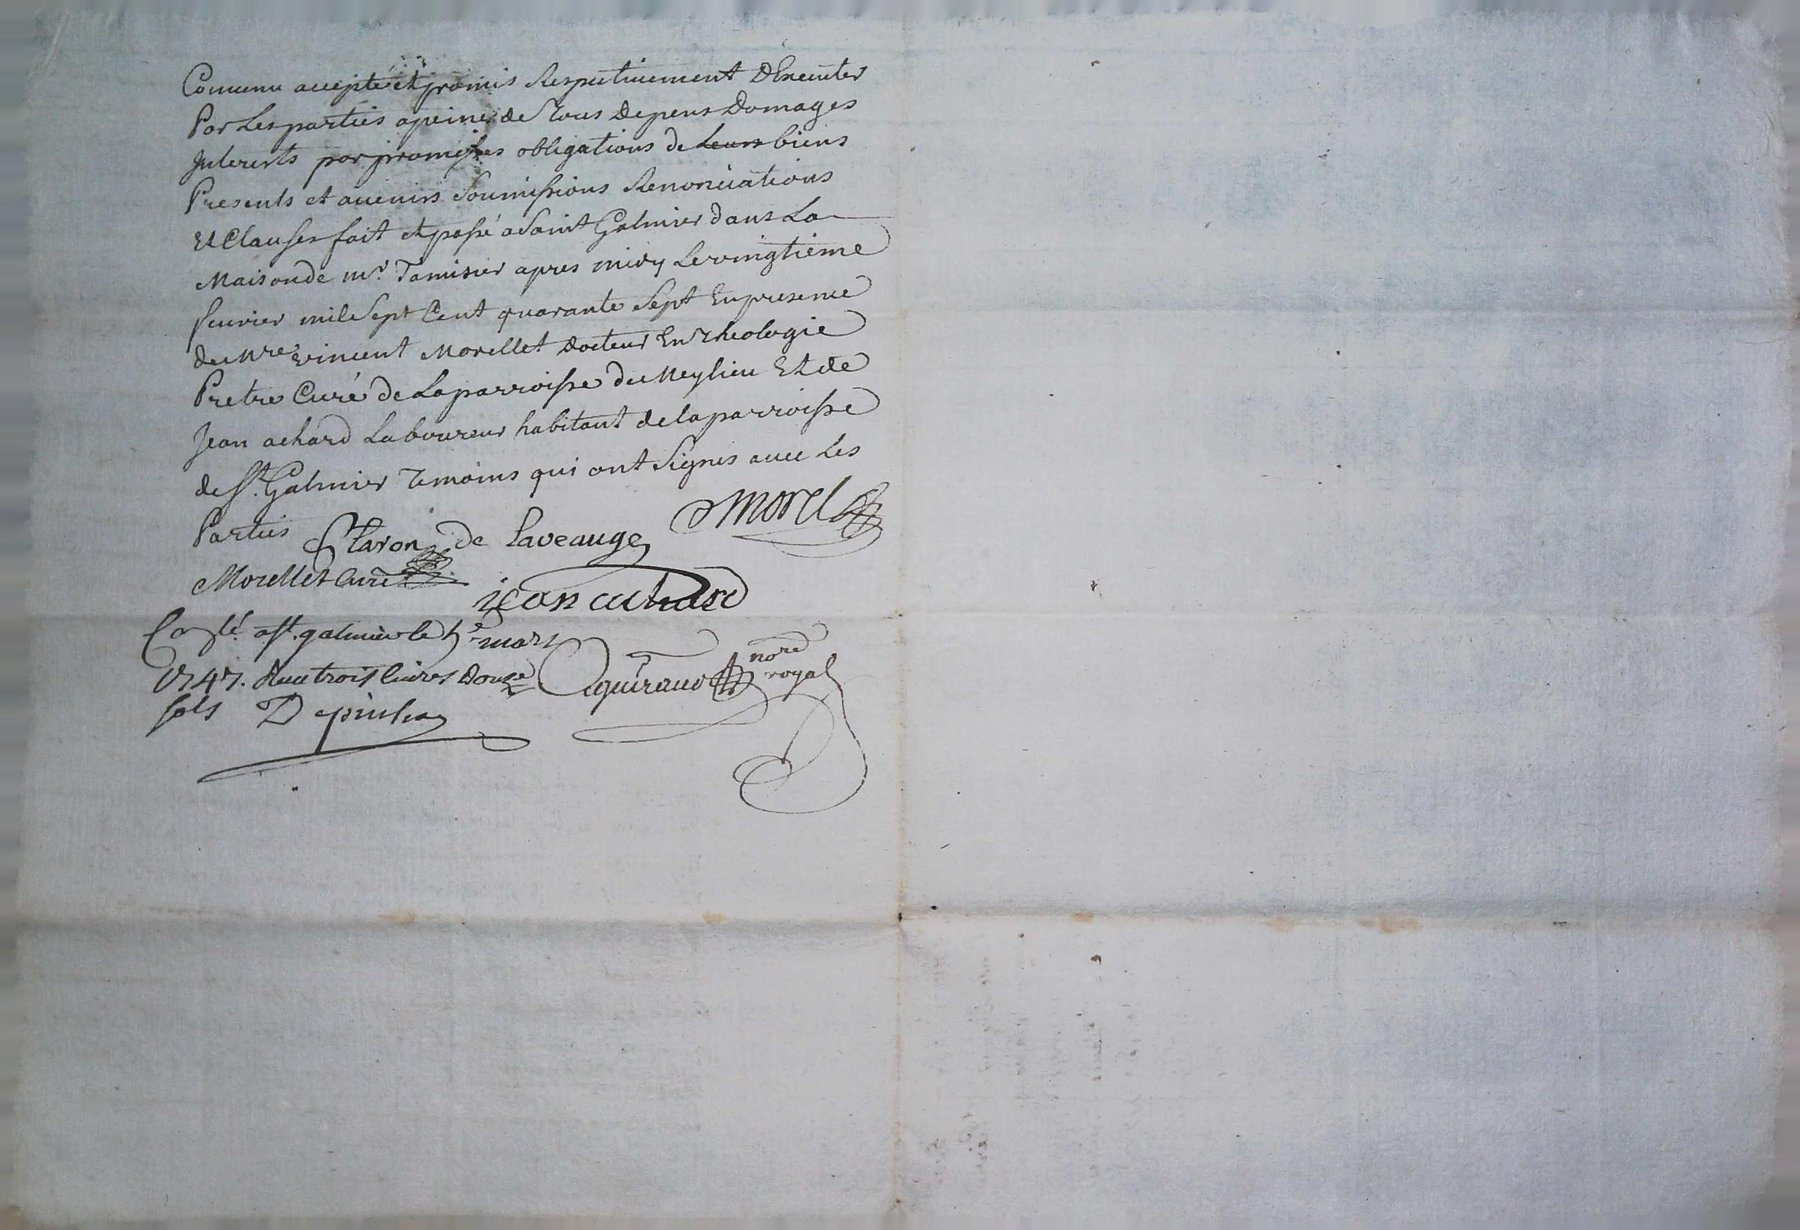 Convenu accepté et promis Respectivement DExecuter
Par Les parties apeine de Tous Depens Domages
Interests par promesses obligations de leurs biens
Presents et avenirs Soumissions Renonciations
Et Clauses fait et passé a Saint Galmier dans La
Maison de mr. Tamisier apres midy Le vingtieme
fevrier mil Sept Cent quarante Sept En presence
de Mre Vincent Morellet Docteur En Theologie
Pretre Curé de La parroisse de Meylieu Et de
Jean achard Laboureur habitant de la parroisse
de St. Galmier Temoins qui ont Signes avec Les
Parties Staron de laveauge Morel
Morellet Curé
jean achard
Conlé. a st. galmier le 5e mars
1747. Reçu trois livres Douze
sols
guiraud nore royal